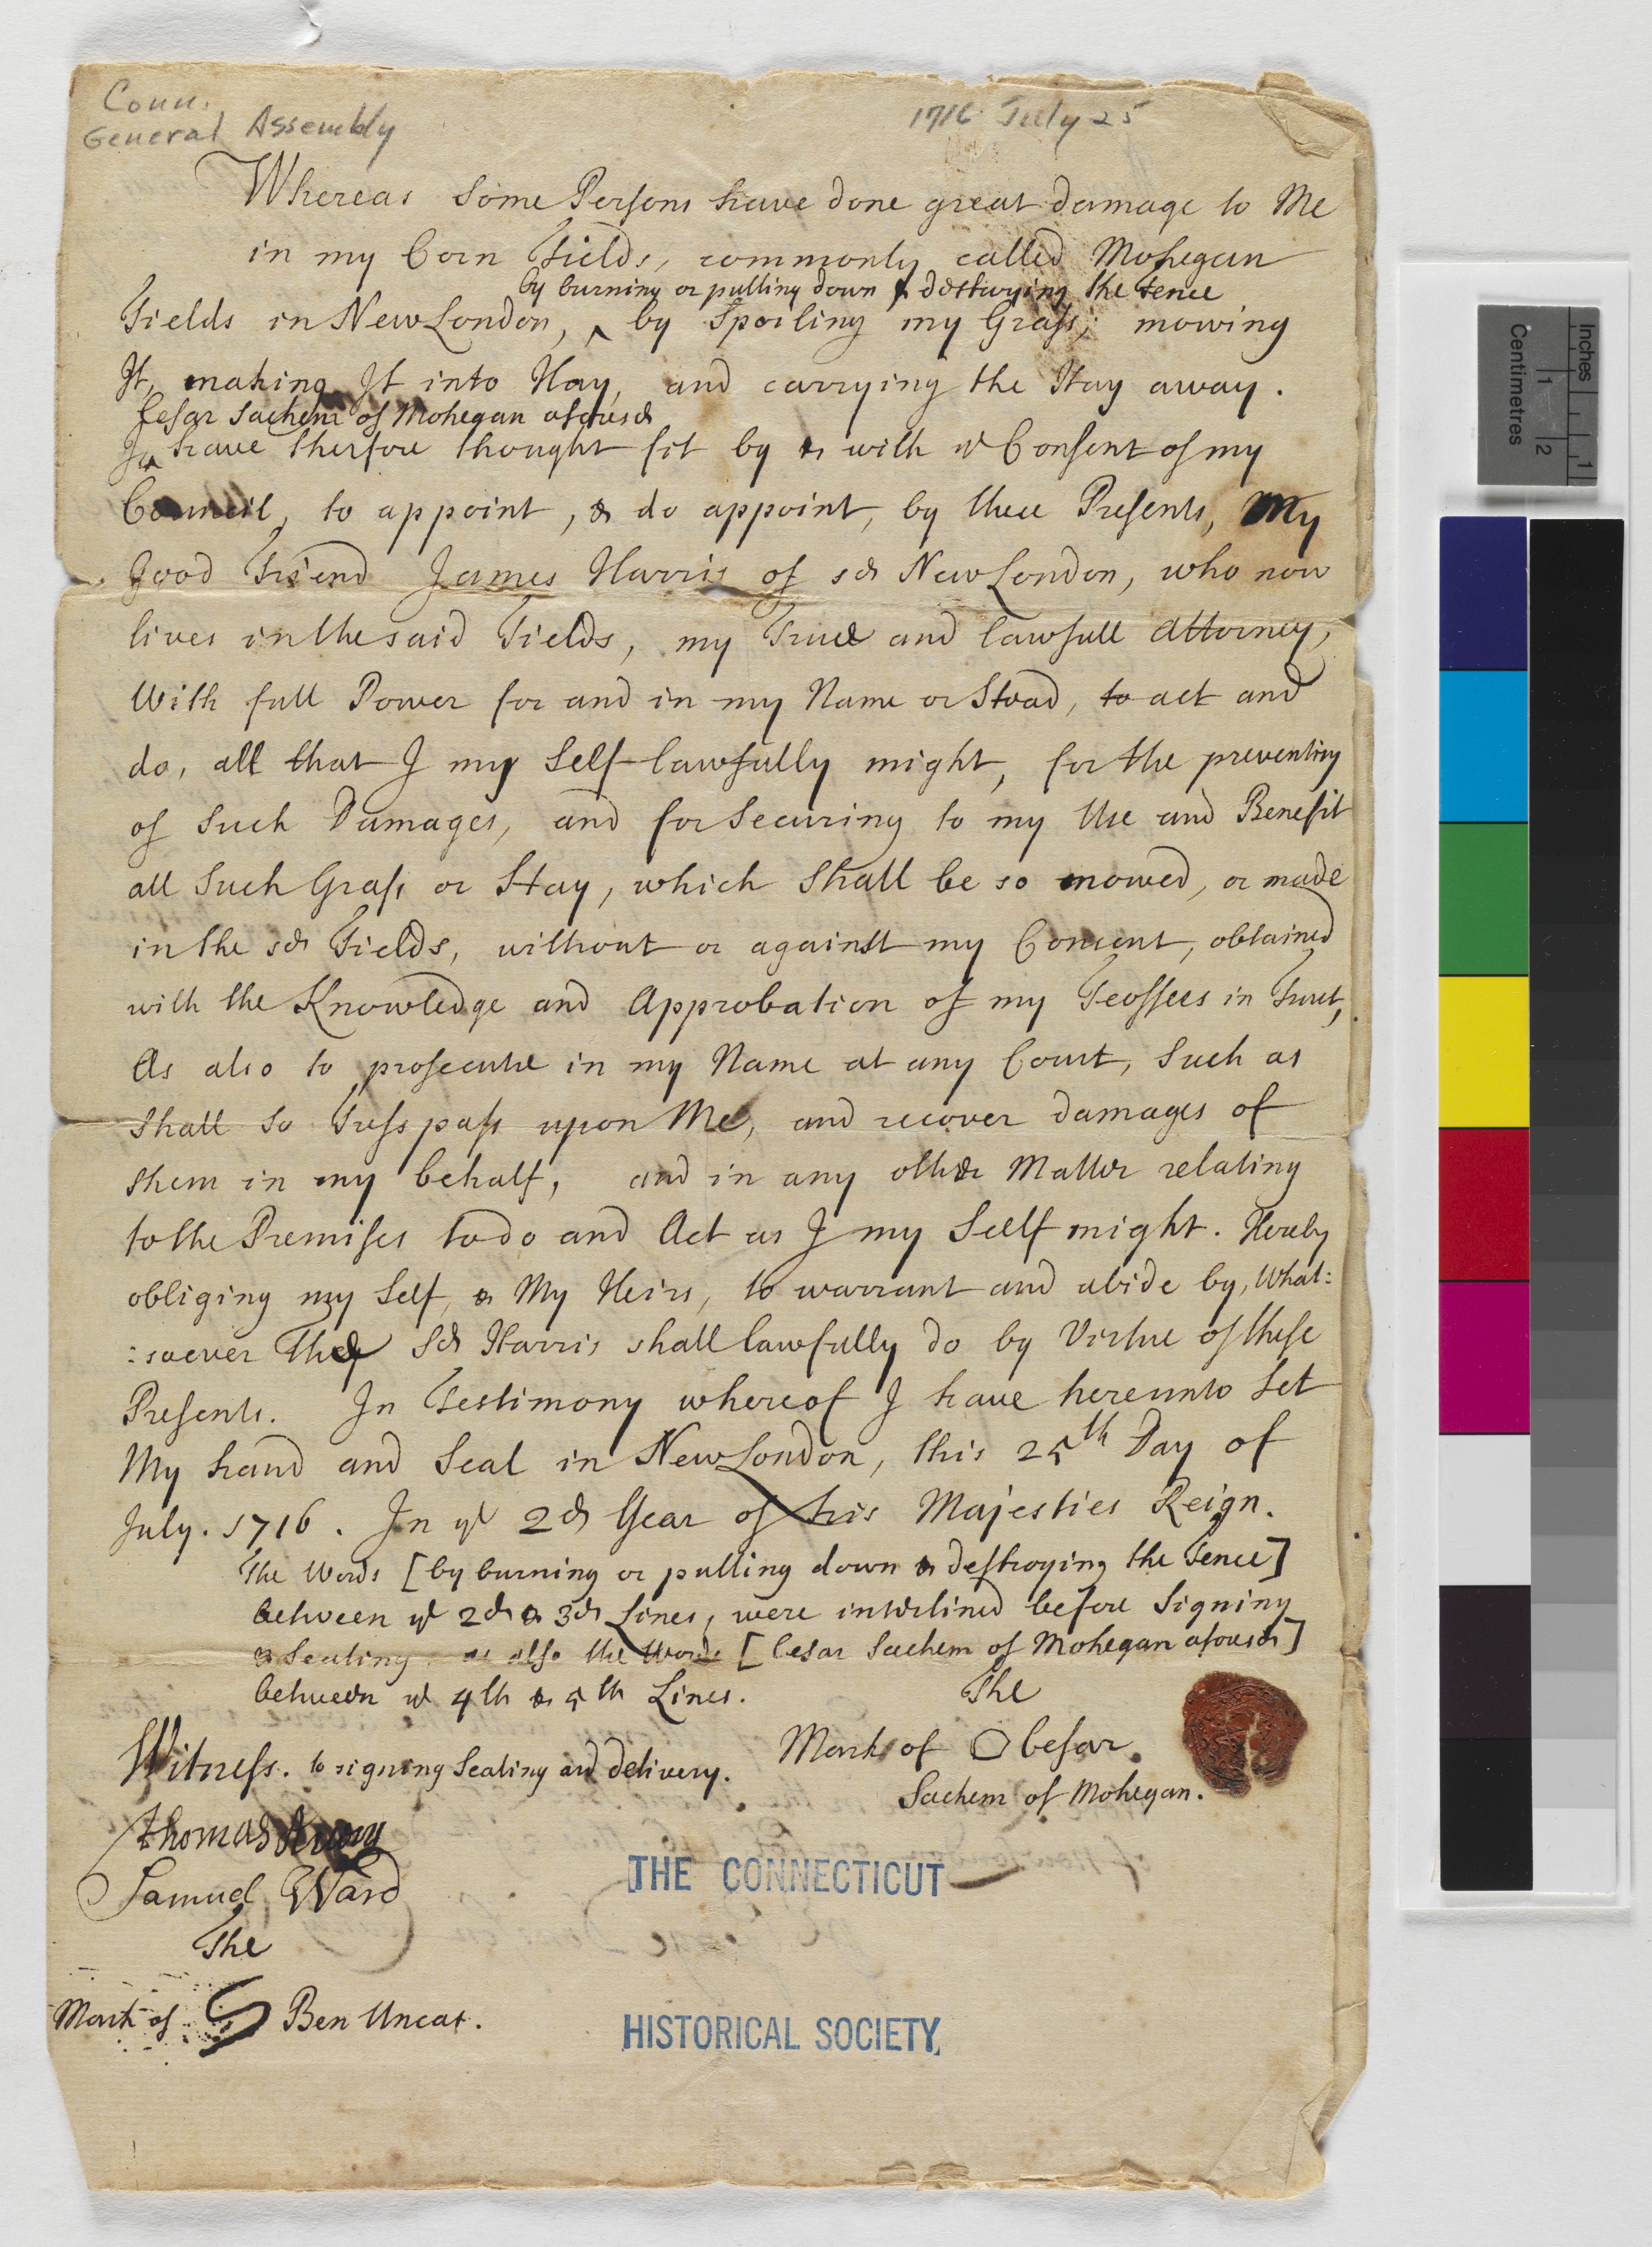 Conn.
General Assembly
1716 July 25
Whereas Some Persons have done great damage to Me
in my Corn Fields, commonly called Mohegan
by burning or pulling down & destroying the Fence
Fields in New London, ^ by Spoiling my Grass, mowing
It, making It into Hay, and carrying the Hay away.
Cesar Sachem of Mohegan aforesd
I ^ have therfore thought fit by & with ye Consent of my
Council, to appoint, & do appoint, by these Presents, My
good Friend James Harris of sd New London, who now
lives in the said Fields, my True and lawfull Attorney,
With full Power for and in my Name or Stead, to act and
do, all that I my Self lawfully might, for the preventing
of Such Damages, and for Securing to my Use and Benefit
all Such Grass or Hay, which Shall be so mowed, or made
in the sd Fields, without or against my Consent, obtained
with the Knowledge and Approbation of my Feoffees in Trust,
As also to prosecute in my Name at any Court, Such as
Shall So Tresspass upon Me, and recover damages of
them in my behalf, and in any other Matter relating
to the Premises to do and Act as I my Self might. Hereby
obliging my Self, & My Heirs, to warrant and abide by, What:
:soever The Sd Harris shall lawfully do by Virtue of these
Presents. In Testimony whereof I have hereunto Set
My hand and Seal in New London, this 25th Day of
July. 1716. In ye 2d Year of his Majesties Reign.
The Words [by burning or pulling down & destroying the Fence]
between ye 2d & 3d Lines, were interlined before Signing
& Sealing, as also the Words [Cesar Sachem of Mohegan aforesd]
between ye 4th & 5th Lines.
The
Mark of Cesar.
Sachem of Mohegan.
Witness. to signing Sealing and delivery.
Thomas
Samuel Ward
The
Mark of Ben Uncas.
THE CONNECTICUT
HISTORICAL SOCIETY
Inches
1
Centimetres
1
2